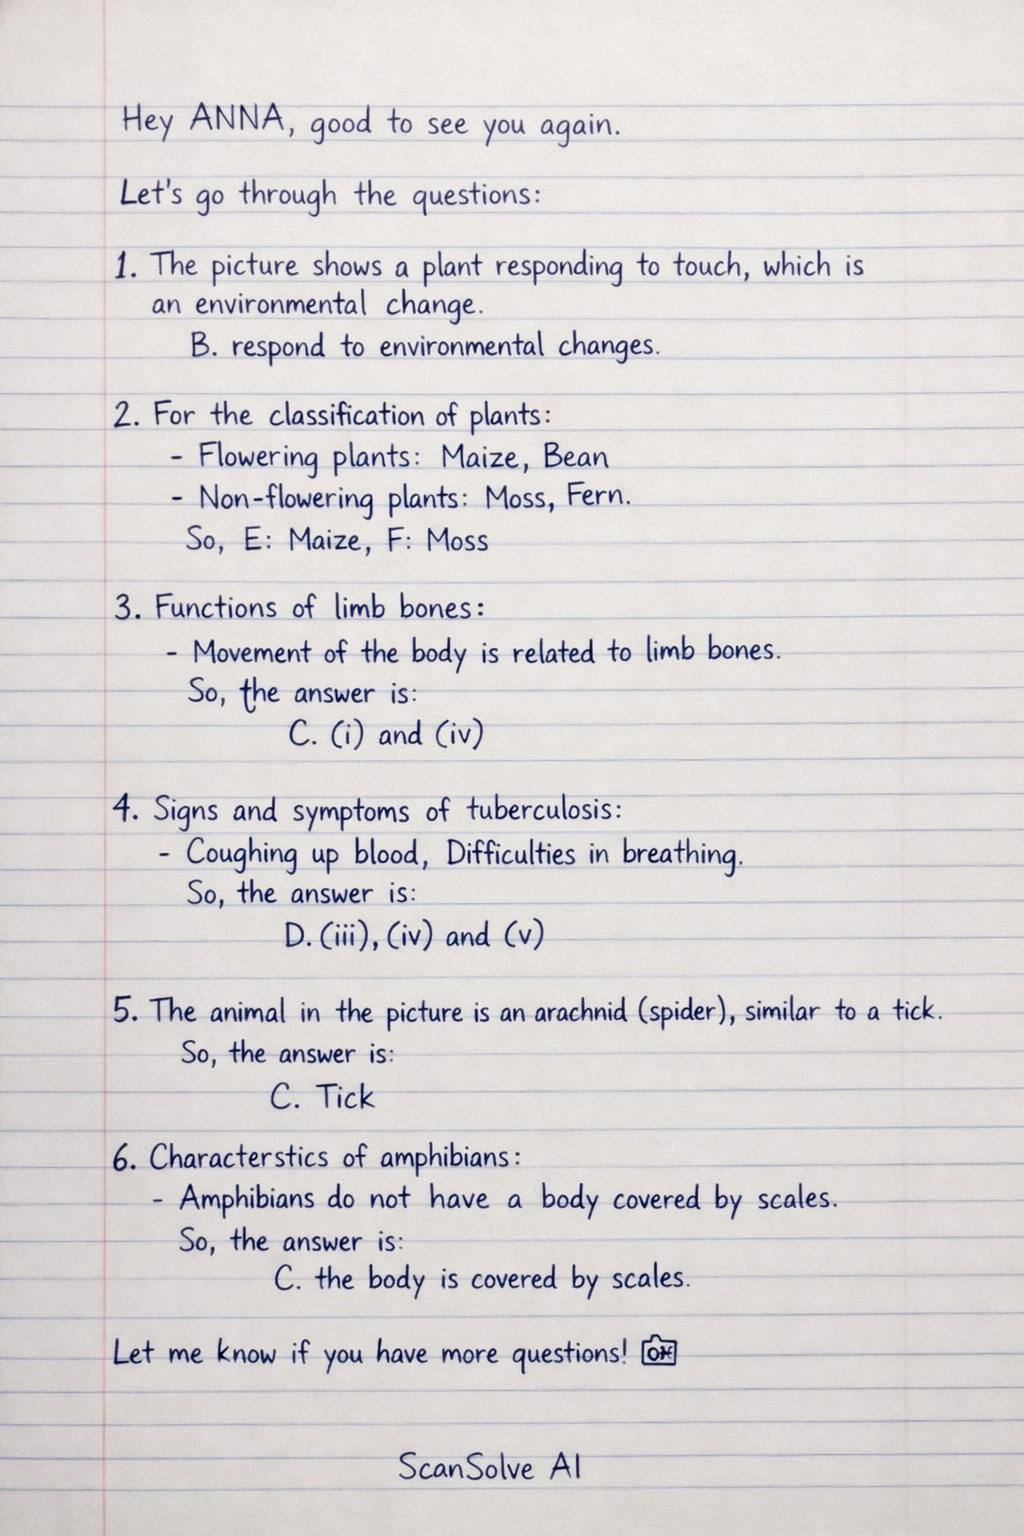 Hey ANNA, good to see you again.
Let's go through the questions:
1. The picture shows a plant responding to touch, which is
an environmental change.
B. respond to environmental changes.
2. For the classification of plants:
- Flowering plants: Maize, Bean
- Non-flowering plants: Moss, Fern.
So, E: Maize, F: Moss
3. Functions of limb bones:
- Movement of the body is related to limb bones.
So, the answer is:
C. (i) and (iv)
4. Signs and symptoms of tuberculosis:
- Coughing up blood, Difficulties in breathing.
So, the answer is:
D. (iii), (iv) and (v)
5. The animal in the picture is an arachnid (spider), similar to a tick.
So, the answer is:
C. Tick
6. Characterstics of amphibians:
- Amphibians do not have a body covered by scales.
So, the answer is:
C. the body is covered by scales.
Let me know if you have more questions!
ScanSolve AI